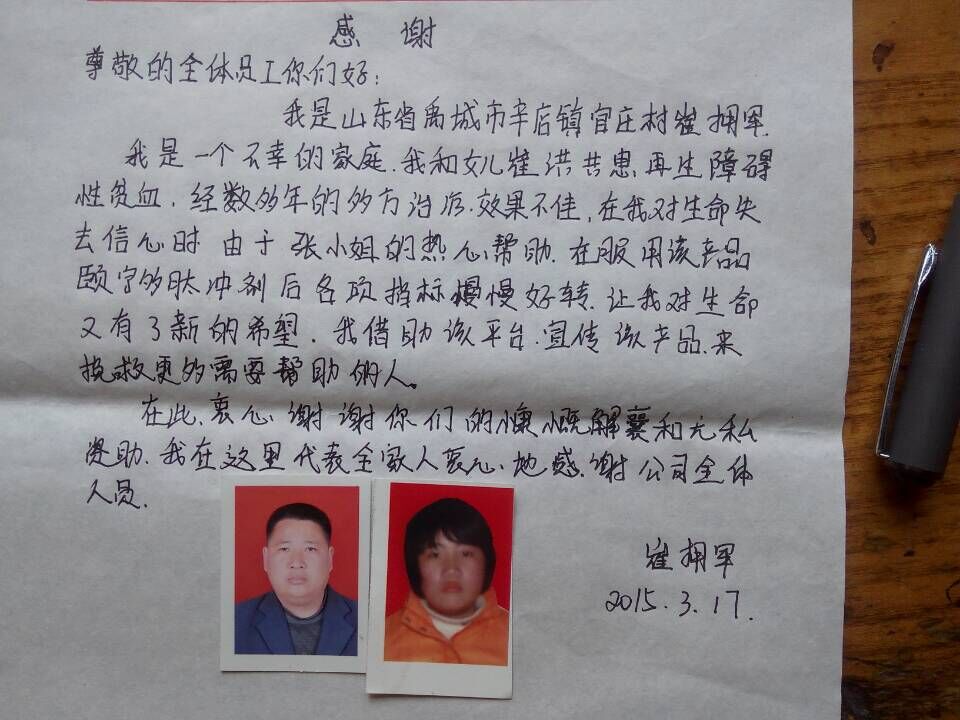 感谢
尊敬的全体员工你们好:
我是山东省禹城市辛店镇官庄村崔拥军.
我是一个不幸的家庭.我和女儿崔洪共患再生障碍
性贫血.经数多年的多方治疗.效果不佳,在我对生命失
去信心时由于张小姐的热心帮助.在服用该产品
颐宁多肽冲剂后各项指标慢慢好转.让我对生命
又有了新的希望.我借助该平台.宣传该产品.来
挽救更多需要帮助的人。
在此.衷心谢谢你们的慷慨解囊和无私
资助.我在这里代表全家人衷心地感谢公司全体
人员.
崔拥军
2015.3.17.